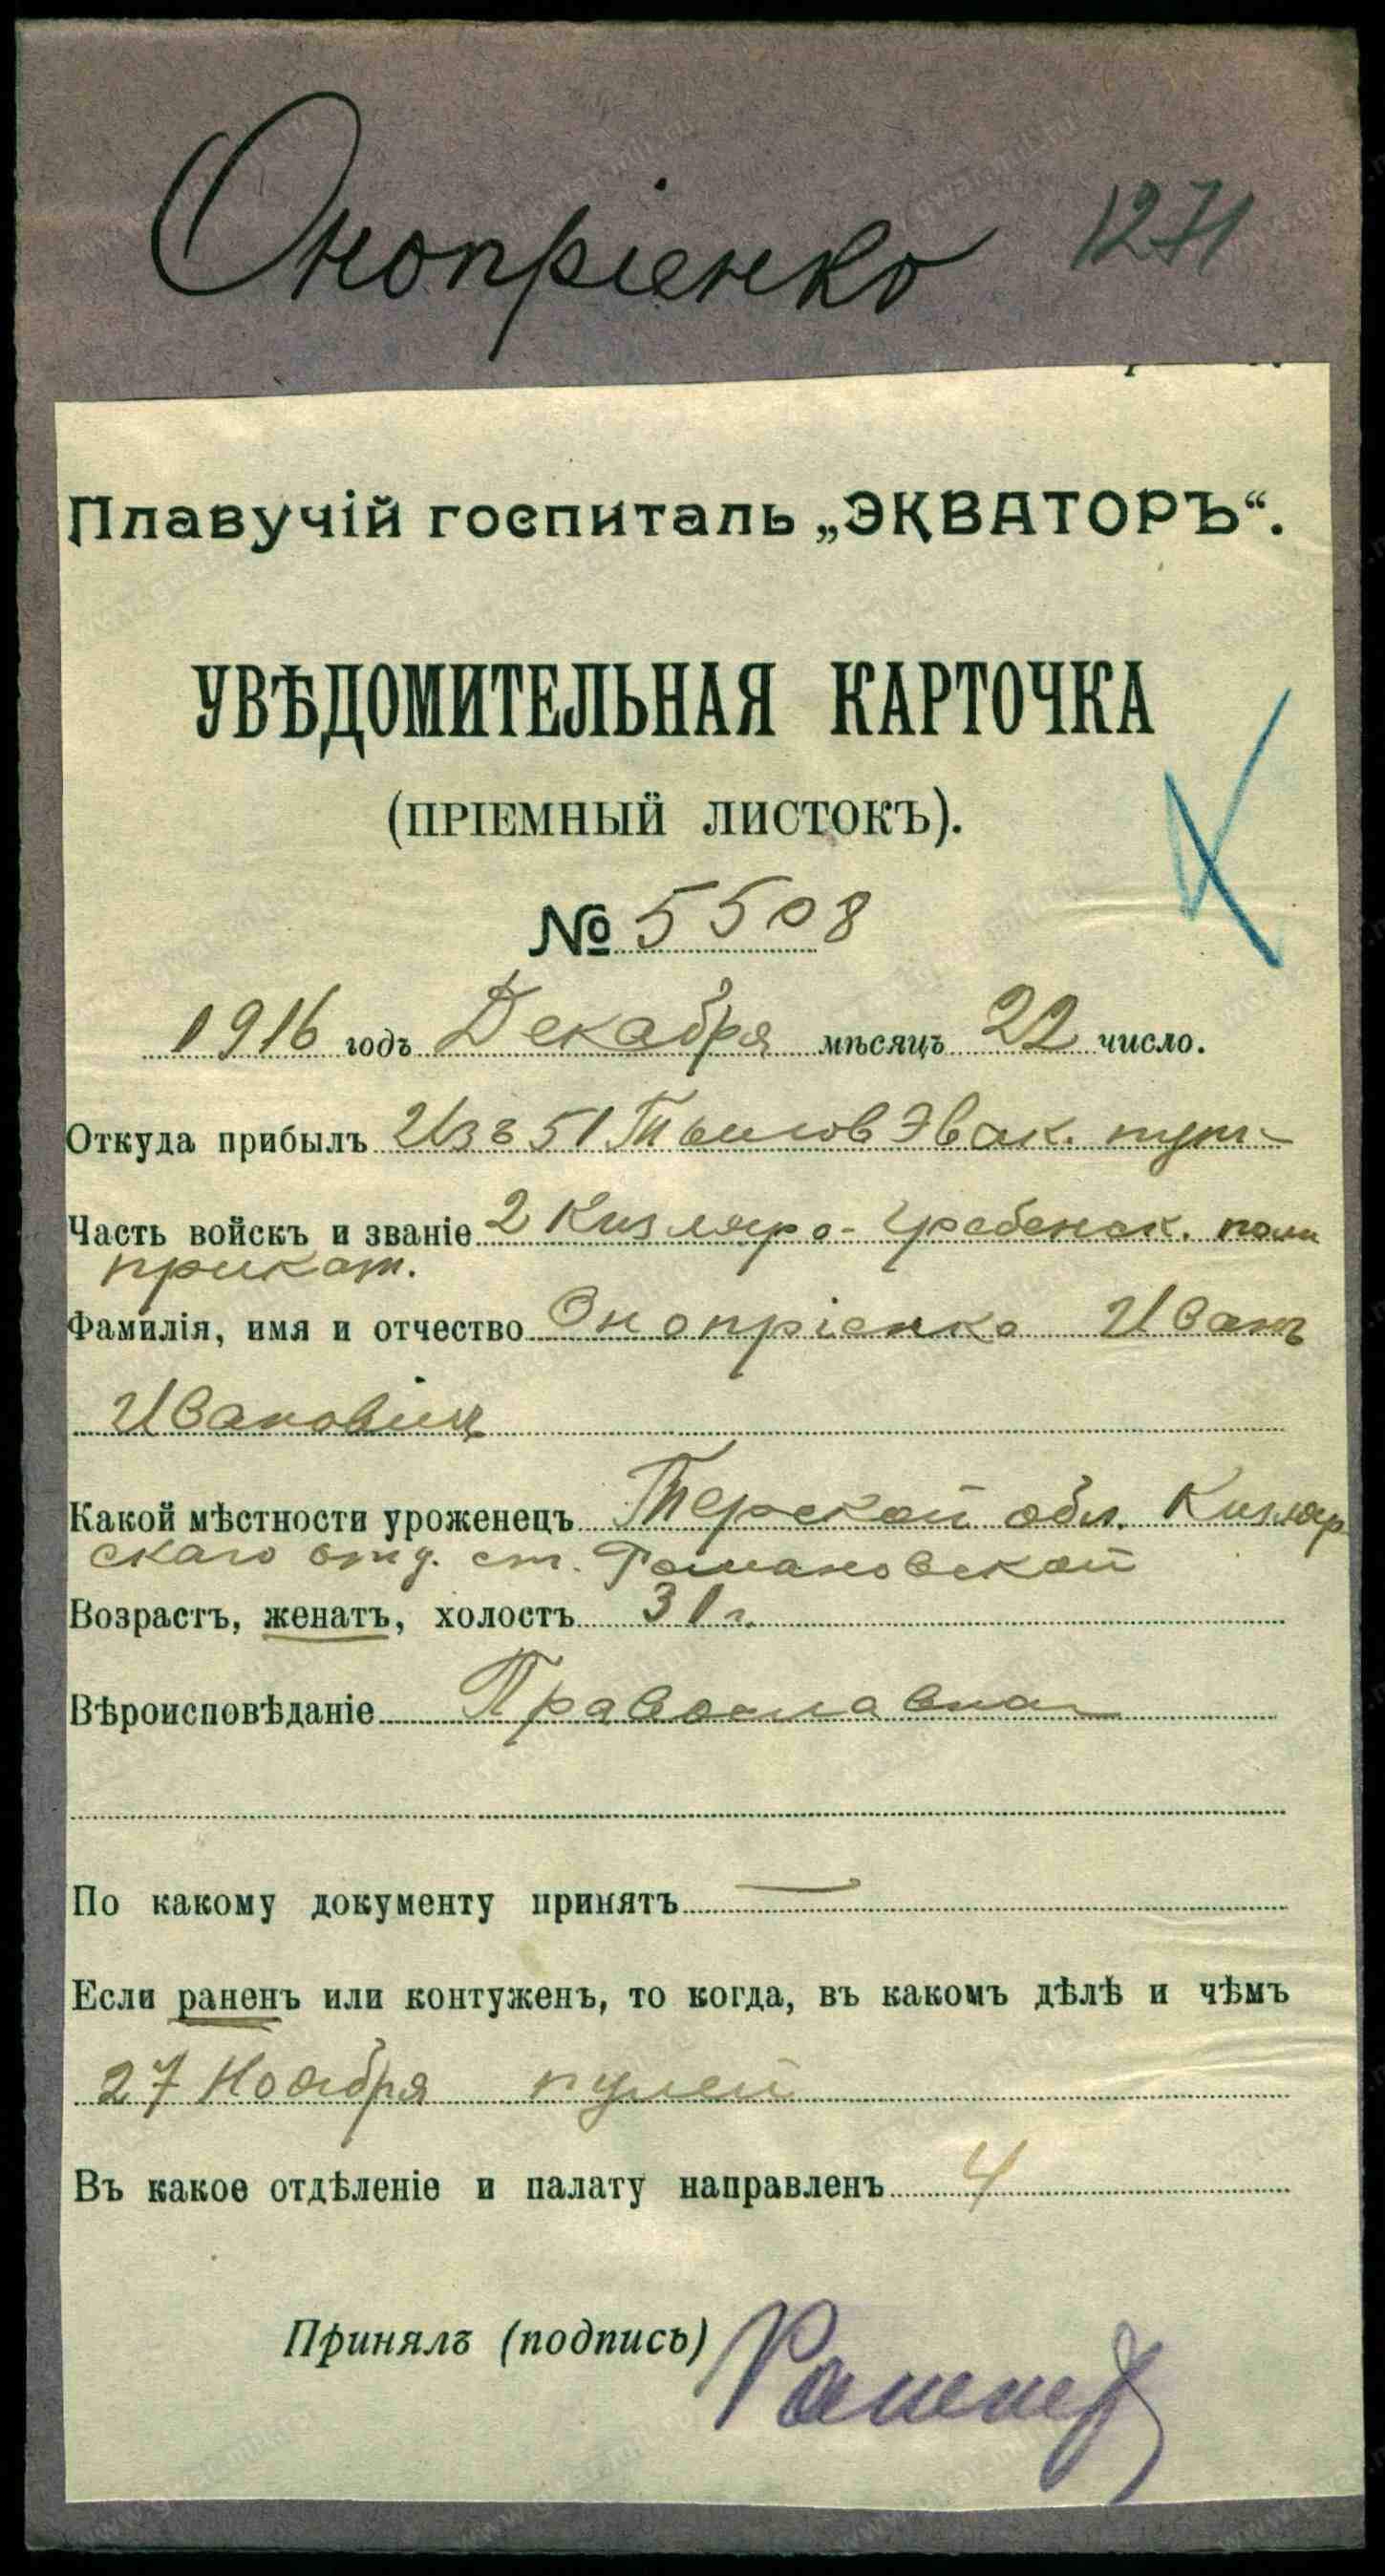 Онопріенко 1271
Плавучій госпиталь „ЭКВАТОРЪ“.
УВѢДОМИТЕЛЬНАЯ КАРТОЧКА
(ПРІЕМНЫЙ ЛИСТОКЪ).
№ 5508
1916 годъ Декабря мѣсяцъ 22 число.
Откуда прибылъ Изъ 51 Тылов Эвак. пун.
Часть войскъ и званіе 2 Кизляро-Гребенск. полк
приказ.
Фамилія, имя и отчество Онопріенко Иванъ
Ивановичъ
Какой мѣстности уроженецъ Терской обл. Кизляр
скаго отд. ст. Романовской
Возрастъ, женатъ, холостъ 31 г.
Вѣроисповѣданіе Православная
По какому документу принятъ —
Если раненъ или контуженъ, то когда, въ какомъ дѣлѣ и чѣмъ
27 Ноября пулей
Въ какое отдѣленіе и палату направленъ 4
Принялъ (подпись)